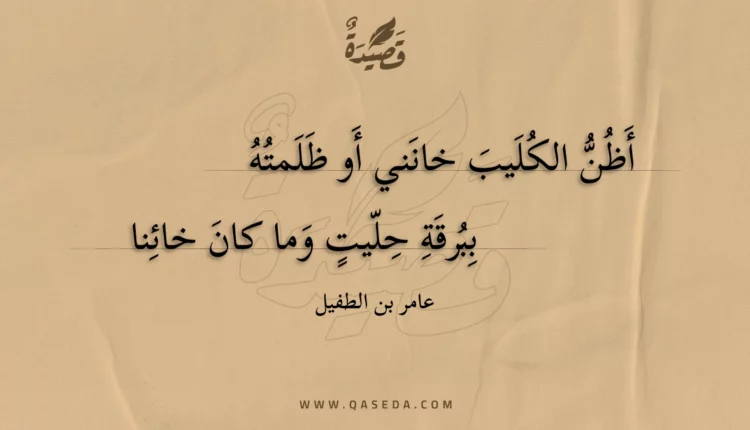 قَصِيدَةٌ
أَظُنُّ الكُلَيبَ خانَني أَو ظَلَمتُهُ
بِبُرقَةِ حِلّيتٍ وَما كانَ خائِنا
عامر بن الطفيل
WWW.QASEDA.COM